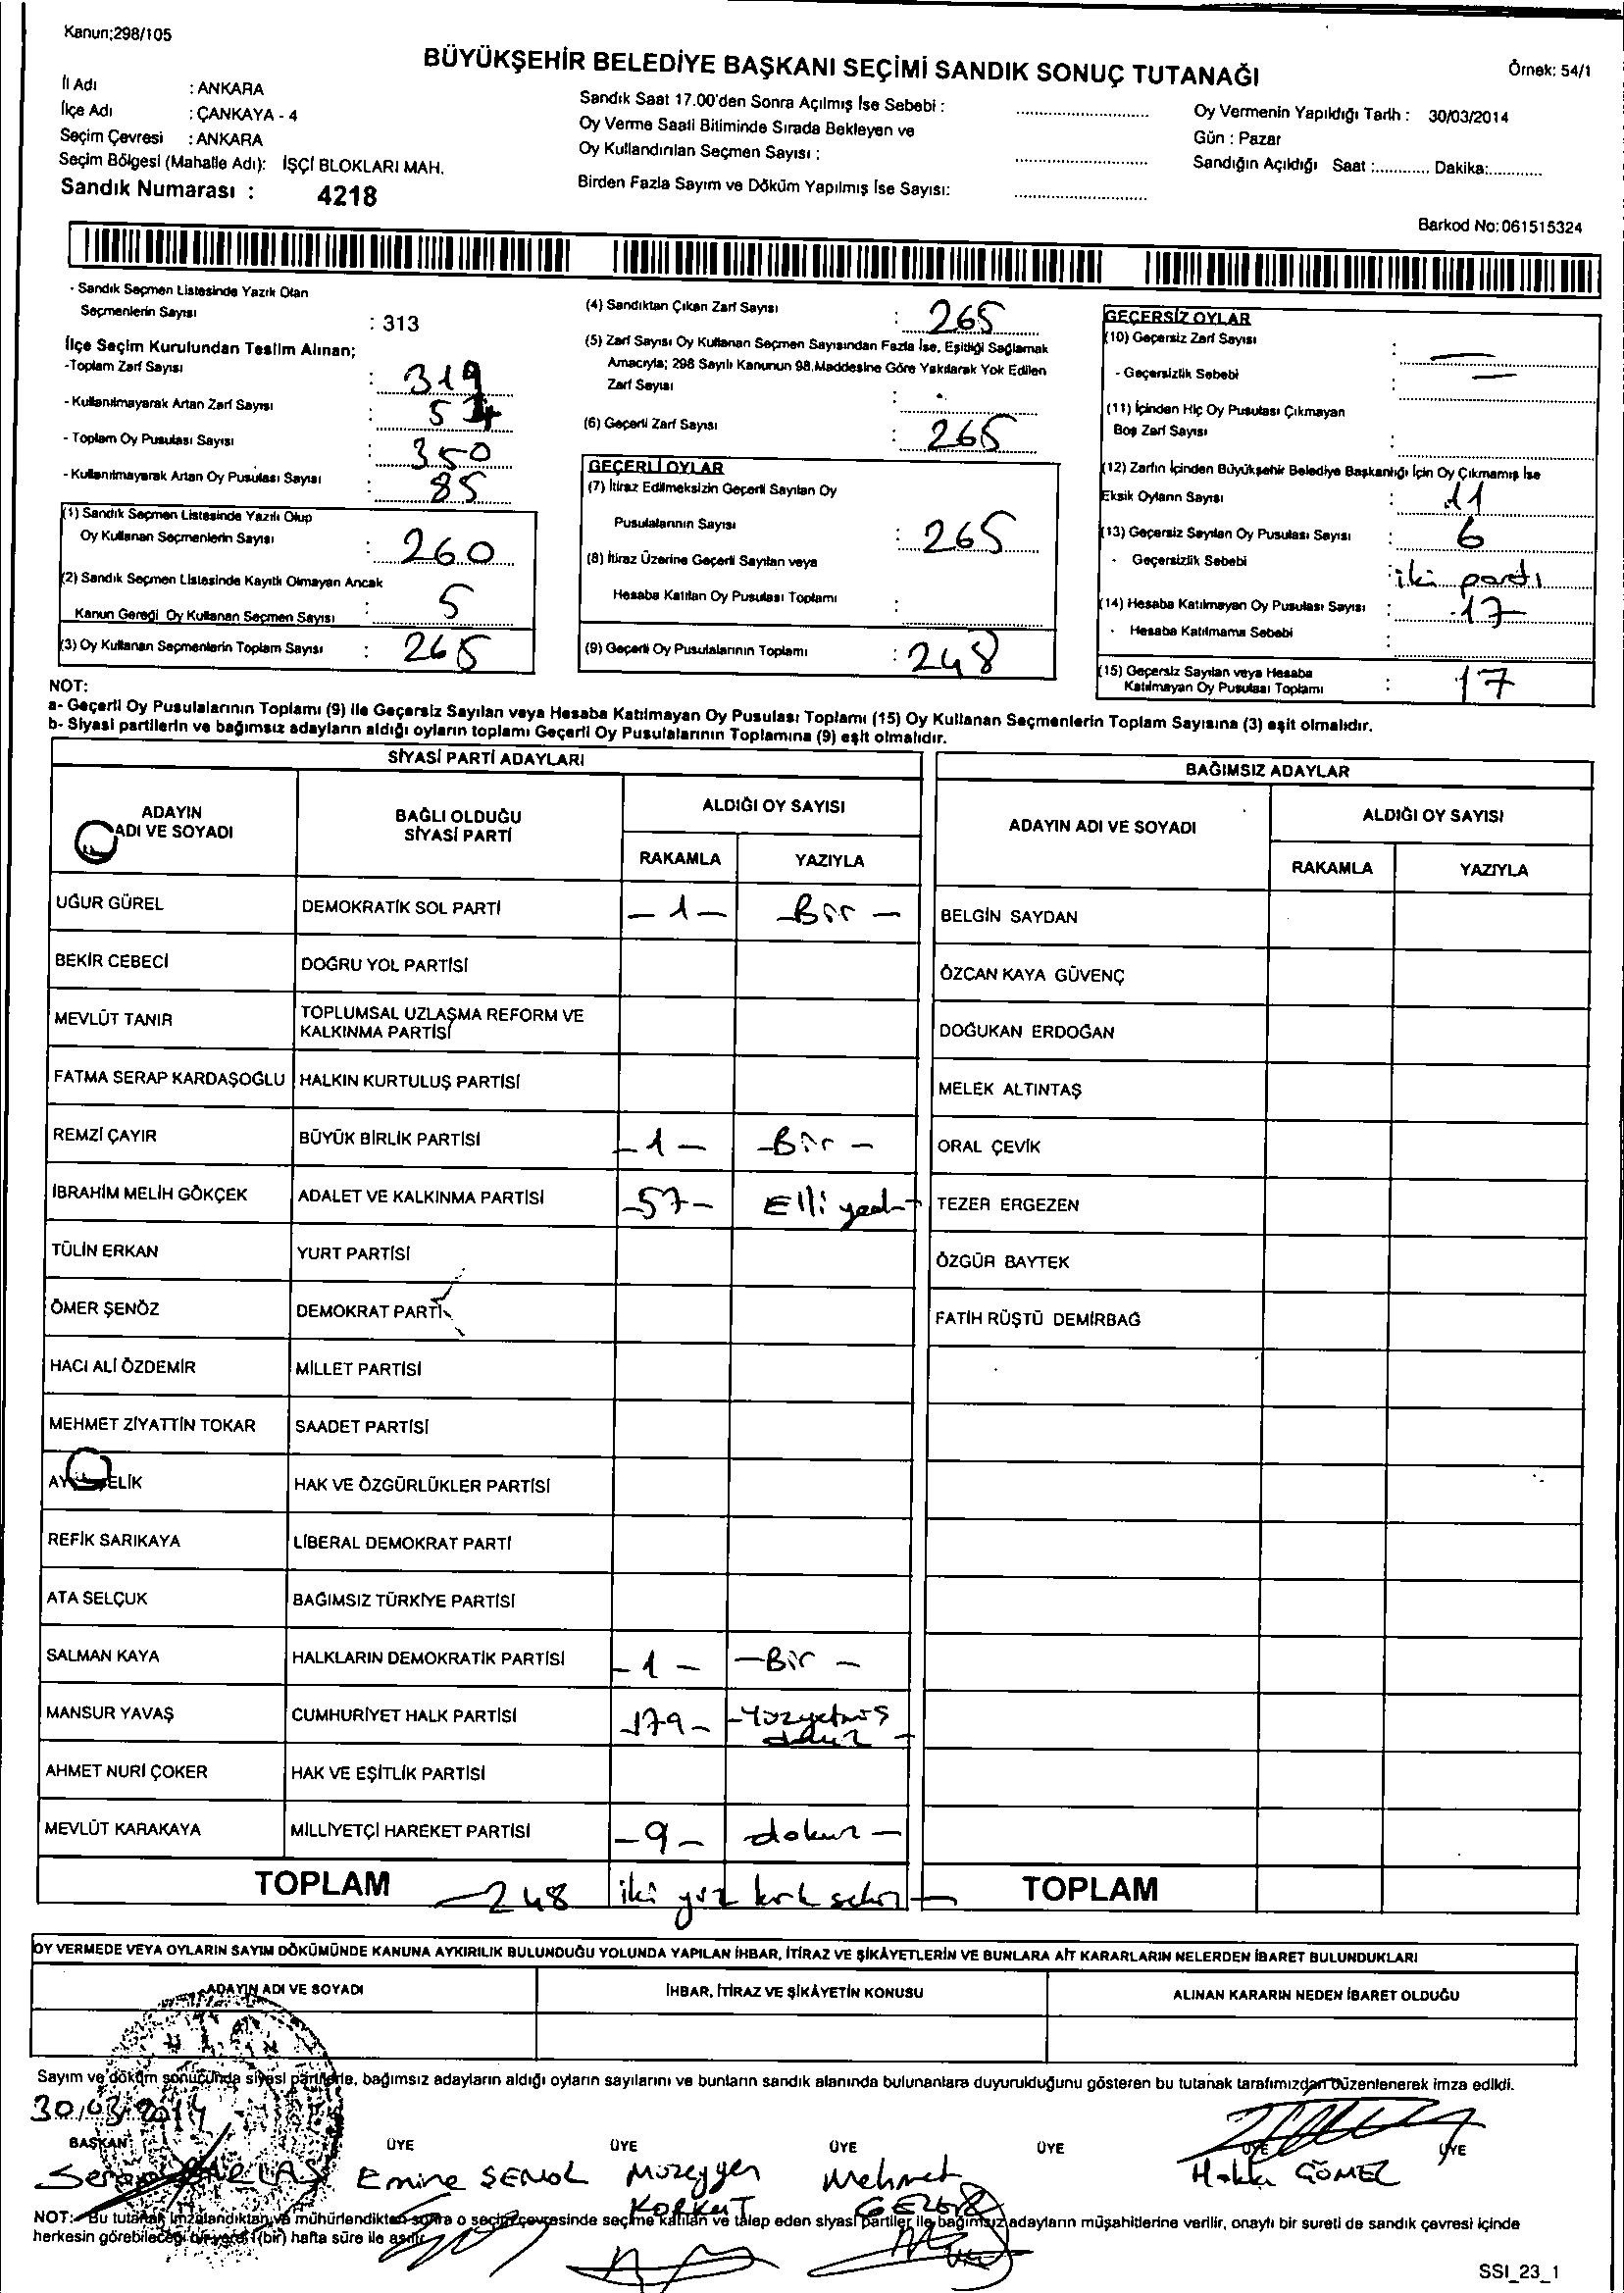 Kanun;298/105
BÜYÜKŞEHİR BELEDİYE BAŞKANI SEÇİMİ SANDIK SONUÇ TUTANAĞI
Örnek: 54/1
İl Adı : ANKARA
İlçe Adı : ÇANKAYA - 4
Seçim Çevresi : ANKARA
Seçim Bölgesi (Mahalle Adı): İŞÇİ BLOKLARI MAH.
Sandık Numarası : 4218
Sandık Saat 17.00'den Sonra Açılmış İse Sebebi :
Oy Verme Saati Bitiminde Sırada Bekleyen ve
Oy Kullandırılan Seçmen Sayısı :
Birden Fazla Sayım ve Döküm Yapılmış İse Sayısı:
Oy Vermenin Yapıldığı Tarih : 30/03/2014
Gün : Pazar
Sandığın Açıldığı Saat :............. Dakika:............
Barkod No:061515324
- Sandık Seçmen Listesinde Yazılı Olan
Seçmenlerin Sayısı : 313
İlçe Seçim Kurulundan Teslim Alınan;
-Toplam Zarf Sayısı : 319
- Kullanılmayarak Artan Zarf Sayısı : 54
- Toplam Oy Pusulası Sayısı : 350
- Kullanılmayarak Artan Oy Pusulası Sayısı : 85
(1) Sandık Seçmen Listesinde Yazılı Olup
Oy Kullanan Seçmenlerin Sayısı : 260
(2) Sandık Seçmen Listesinde Kayıtlı Olmayan Ancak
Kanun Gereği Oy Kullanan Seçmen Sayısı : 5
(3) Oy Kullanan Seçmenlerin Toplam Sayısı : 265
(4) Sandıktan Çıkan Zarf Sayısı : 265
(5) Zarf Sayısı Oy Kullanan Seçmen Sayısından Fazla İse, Eşitliği Sağlamak
Amacıyla; 298 Sayılı Kanunun 98.Maddesine Göre Yakılarak Yok Edilen
Zarf Sayısı :
(6) Geçerli Zarf Sayısı : 265
GEÇERLİ OYLAR
(7) İtiraz Edilmeksizin Geçerli Sayılan Oy
Pusulalarının Sayısı : 265
(8) İtiraz Üzerine Geçerli Sayılan veya
Hesaba Katılan Oy Pusulası Toplamı :
(9) Geçerli Oy Pusulalarının Toplamı : 248
GEÇERSİZ OYLAR
(10) Geçersiz Zarf Sayısı : —
- Geçersizlik Sebebi : —
(11) İçinden Hiç Oy Pusulası Çıkmayan
Boş Zarf Sayısı :
(12) Zarfın İçinden Büyükşehir Belediye Başkanlığı İçin Oy Çıkmamış İse
Eksik Oyların Sayısı : 11
(13) Geçersiz Sayılan Oy Pusulası Sayısı : 6
- Geçersizlik Sebebi : iki parti
(14) Hesaba Katılmayan Oy Pusulası Sayısı : 17
- Hesaba Katılmama Sebebi :
(15) Geçersiz Sayılan veya Hesaba
Katılmayan Oy Pusulası Toplamı : 17
NOT:
a- Geçerli Oy Pusulalarının Toplamı (9) ile Geçersiz Sayılan veya Hesaba Katılmayan Oy Pusulası Toplamı (15) Oy Kullanan Seçmenlerin Toplam Sayısına (3) eşit olmalıdır.
b- Siyasi partilerin ve bağımsız adayların aldığı oyların toplamı Geçerli Oy Pusulalarının Toplamına (9) eşit olmalıdır.
SİYASİ PARTİ ADAYLARI
ADAYIN ADI VE SOYADI BAĞLI OLDUĞU SİYASİ PARTİ ALDIĞI OY SAYISI
RAKAMLA YAZIYLA
UĞUR GÜREL DEMOKRATİK SOL PARTİ - 1 - - Bir -
BEKİR CEBECİ DOĞRU YOL PARTİSİ
MEVLÜT TANIR TOPLUMSAL UZLAŞMA REFORM VE KALKINMA PARTİSİ
FATMA SERAP KARDAŞOĞLU HALKIN KURTULUŞ PARTİSİ
REMZİ ÇAYIR BÜYÜK BİRLİK PARTİSİ - 1 - - Bir -
İBRAHİM MELİH GÖKÇEK ADALET VE KALKINMA PARTİSİ - 57 - Elli yedi -
TÜLİN ERKAN YURT PARTİSİ
ÖMER ŞENÖZ DEMOKRAT PARTİ
HACI ALİ ÖZDEMİR MİLLET PARTİSİ
MEHMET ZİYATTİN TOKAR SAADET PARTİSİ
HAK VE ÖZGÜRLÜKLER PARTİSİ
REFİK SARIKAYA LİBERAL DEMOKRAT PARTİ
ATA SELÇUK BAĞIMSIZ TÜRKİYE PARTİSİ
SALMAN KAYA HALKLARIN DEMOKRATİK PARTİSİ - 1 - - Bir -
MANSUR YAVAŞ CUMHURİYET HALK PARTİSİ 179 - - Yüzyetmiş dokuz -
AHMET NURİ ÇOKER HAK VE EŞİTLİK PARTİSİ
MEVLÜT KARAKAYA MİLLİYETÇİ HAREKET PARTİSİ - 9 - dokuz -
TOPLAM - 248 iki yüz kırk sekiz -
BAĞIMSIZ ADAYLAR
ADAYIN ADI VE SOYADI ALDIĞI OY SAYISI
RAKAMLA YAZIYLA
BELGİN SAYDAN
ÖZCAN KAYA GÜVENÇ
DOĞUKAN ERDOĞAN
MELEK ALTINTAŞ
ORAL ÇEVİK
TEZER ERGEZEN
ÖZGÜR BAYTEK
FATİH RÜŞTÜ DEMİRBAĞ
TOPLAM
OY VERMEDE VEYA OYLARIN SAYIM DÖKÜMÜNDE KANUNA AYKIRILIK BULUNDUĞU YOLUNDA YAPILAN İHBAR, İTİRAZ VE ŞİKÂYETLERİN VE BUNLARA AİT KARARLARIN NELERDEN İBARET BULUNDUKLARI
ADAYIN ADI VE SOYADI İHBAR, İTİRAZ VE ŞİKÂYETİN KONUSU ALINAN KARARIN NEDEN İBARET OLDUĞU
Sayım ve döküm sonucunda siyasi partilerle, bağımsız adayların aldığı oyların sayılarını ve bunların sandık alanında bulunanlara duyurulduğunu gösteren bu tutanak tarafımızdan düzenlenerek imza edildi.
30/03/2014
BAŞKAN ÜYE ÜYE ÜYE ÜYE ÜYE ÜYE
Emine ŞENOL Müzeyyen KORKUT Mehmet Hakkı GÖMEZ
NOT: Bu tutanak imzalandıktan ve mühürlendikten sonra o seçim çevresinde seçime katılan ve talep eden siyasi partiler ile bağımsız adayların müşahitlerine verilir, onaylı bir sureti de sandık çevresi içinde
herkesin görebileceği bir yere 1 (bir) hafta süre ile asılır.
SSI_23_1